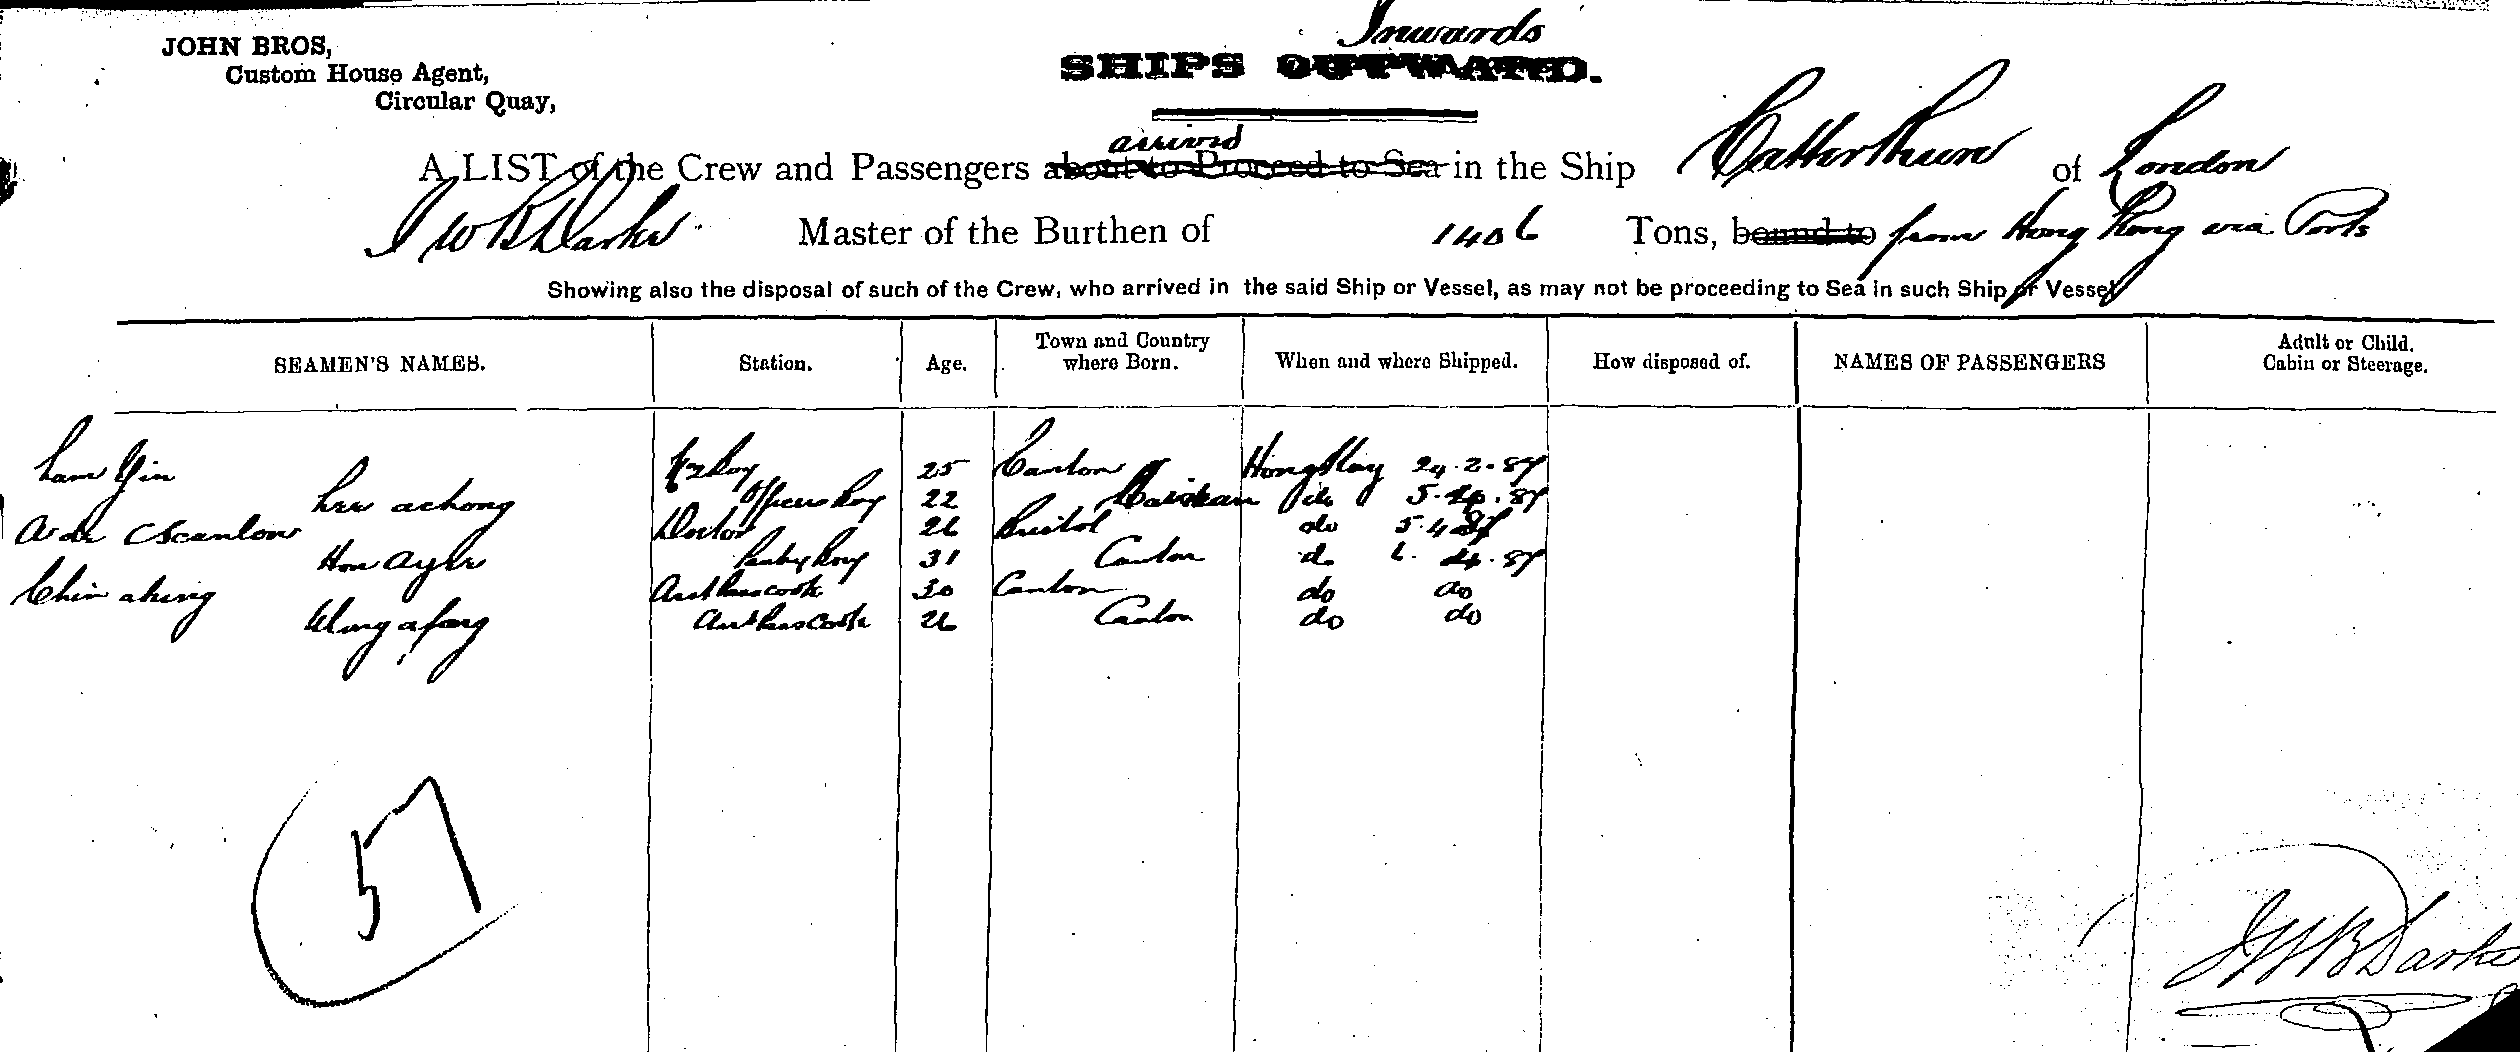 Inwards
JOHN BROS,
SHIPS OUTWARD.
Custom House Agent,
Circular Quay,
arrived
A LIST of the Crew and Passengers about to Proceed to Sea in the Ship Catterthun of London
J W B Darke Master of the Burthen of 1406 Tons, bound to from Hong Kong via Ports
Showing also the disposal of such of the Crew, who arrived in the said Ship or Vessel, as may not be proceeding to Sea in such Ship or Vessel
SEAMEN'S NAMES. Station. Age. Town and Country where Born. When and where Shipped. How disposed of. NAMES OF PASSENGERS Adult or Child. Cabin or Steerage.
Lam Yin Boy 25 Canton Hong Kong 24.2.87
Lew achong Officers Boy 22 do 5.4.87
Scanlon Doctor 26 Bristol do 5.4.87
Hon Ayee Pantry Boy 31 Canton do 6.4.87
Chin ahing cook 30 Canton do do
Wong afong cook 26 Canton do do
57
JWB Darke